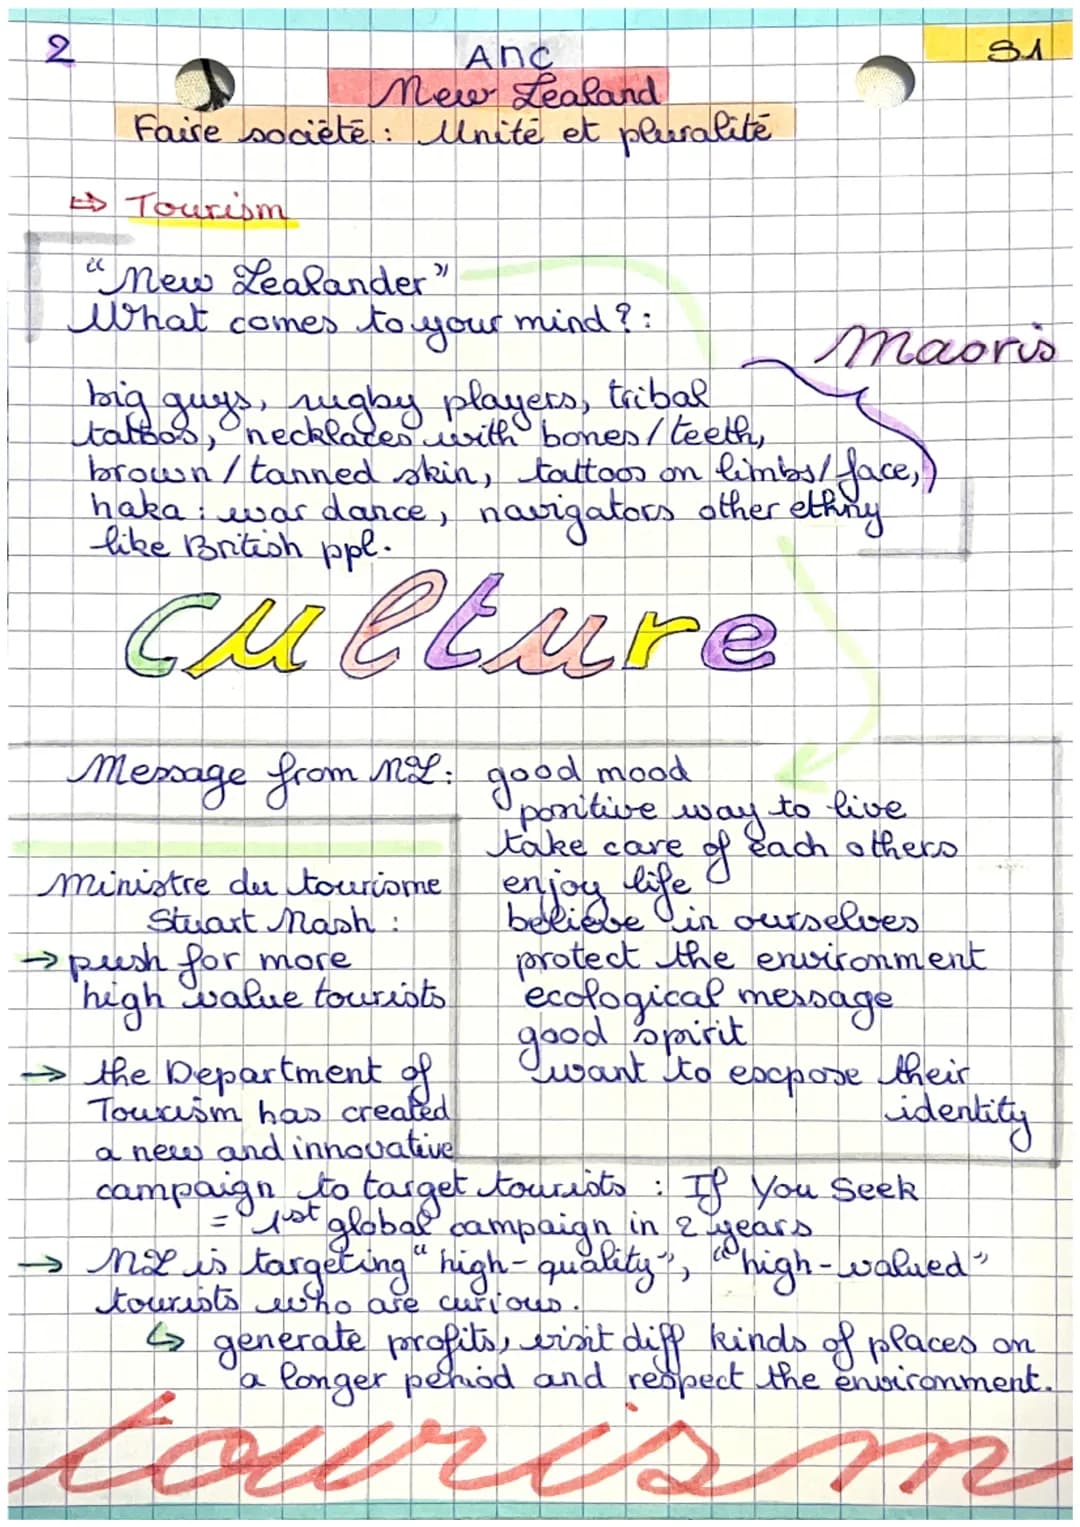 2
ANC
S1
New Zealand
Faire société : Unité et pluralité
⇨ Tourism
"New Zealander"
What comes to your mind? :
Maoris
big guys, rugby players, tribal
tattoos, necklaces with bones/teeth,
brown/tanned skin, tattoos on limbs/face,
haka : war dance, navigators other ethny
like British ppl.
culture
Message from NZ : good mood
positive way to live
take care of each others
enjoy life
believe in ourselves
protect the environment
ecological message
good spirit
want to expose their
identity
Ministre du tourisme
Stuart Nash :
→ push for more
high value tourists
→ the Department of
Tourism has created
a new and innovative
campaign to target tourists : If You Seek
= 1st global campaign in 2 years
→ NZ is targeting "high-quality", "high-valued"
tourists who are curious.
↳ generate profits, visit diff kinds of places on
a longer period and respect the environment.
tourism